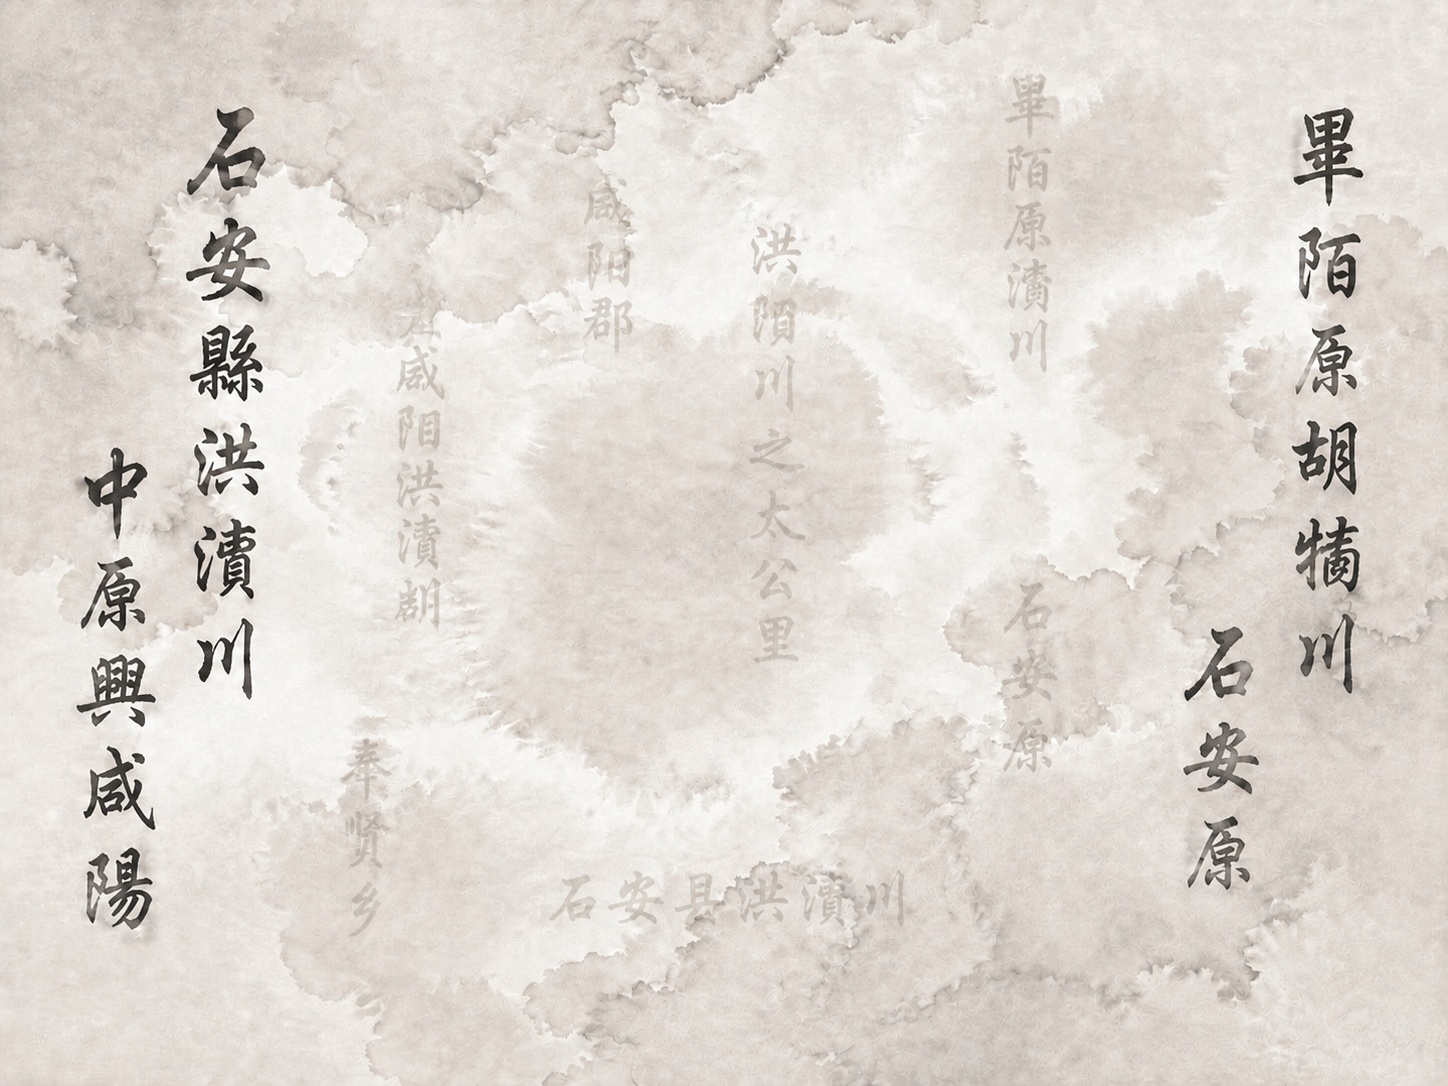 畢陌原胡犢川
石安原
畢陌原瀆川
石安原
洪陌川之太公里
咸阳郡
咸阳洪瀆
奉贤乡
石安县洪瀆川
石安縣洪瀆川
中原興咸陽